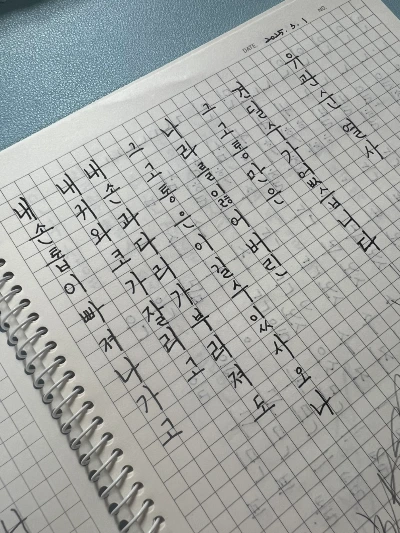 DATE 2025.3.1 NO.
내 손톱이 빠져나가고
내 귀와 코가 잘리고
내 손과 다리가 부러져도
그 고통은 이길 수 있사오나
나라를 잃어버린
그 고통만은
견딜 수가 없습니다
유관순 열사